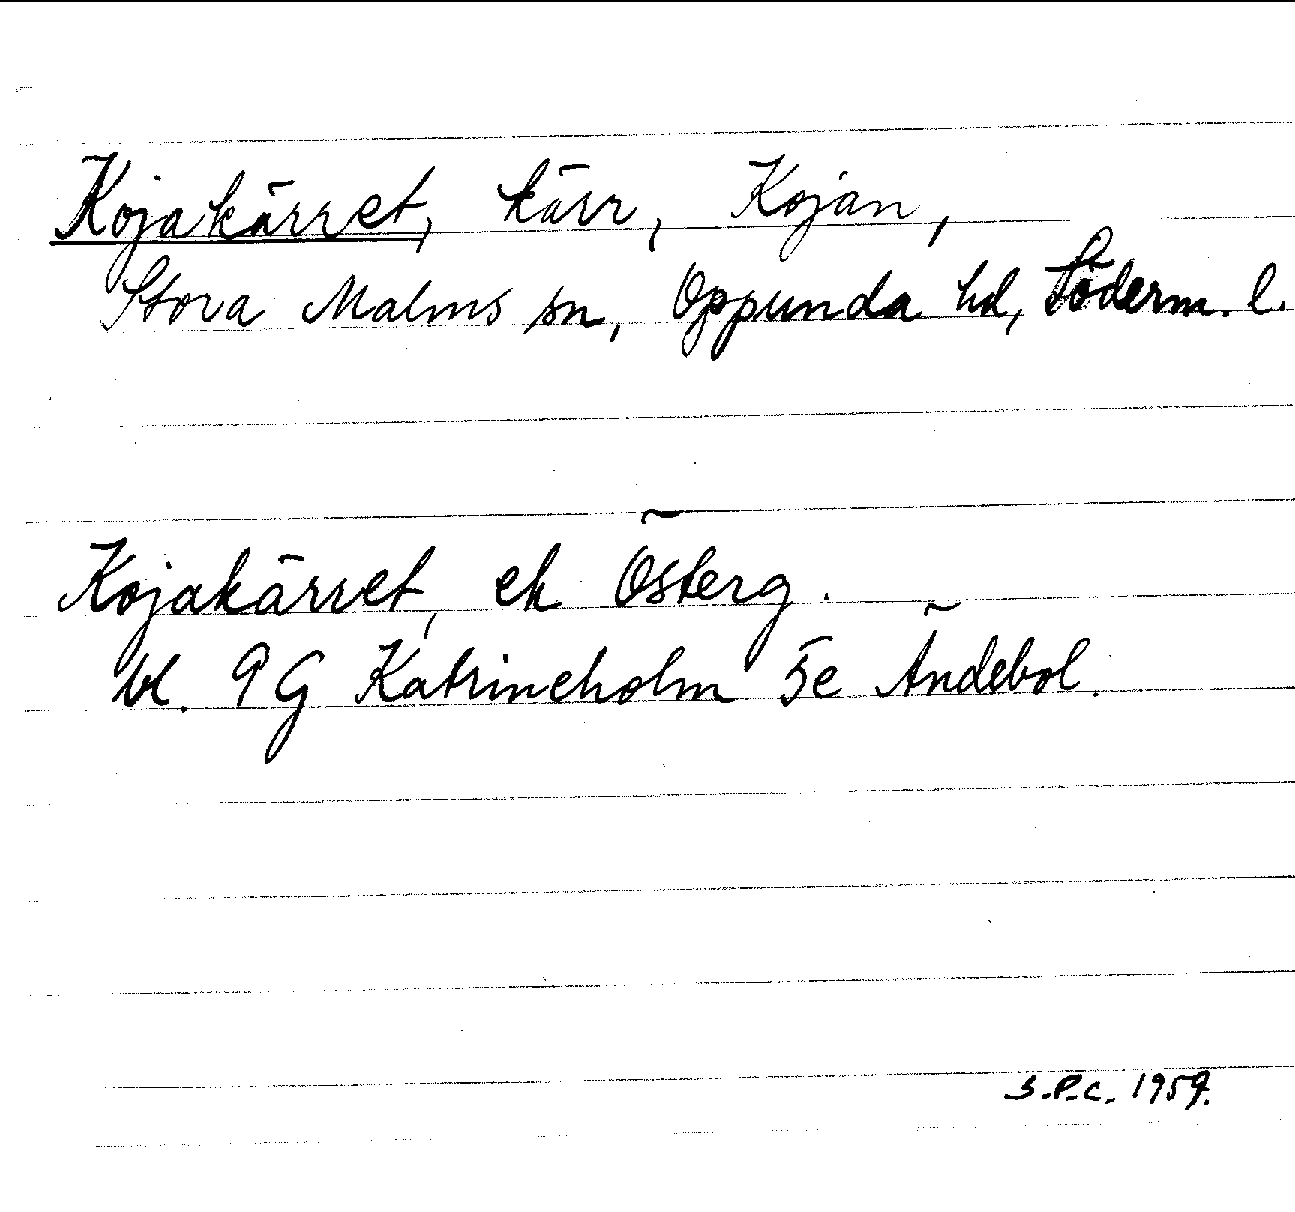 Kojakärret, kärr, Kojan,
Stora Malms sn, Oppunda hd, Söderm. l.
Kojakärret, ek Österg.
bl. 9G Katrineholm 5e Ändebol.
S.P.C. 1959.